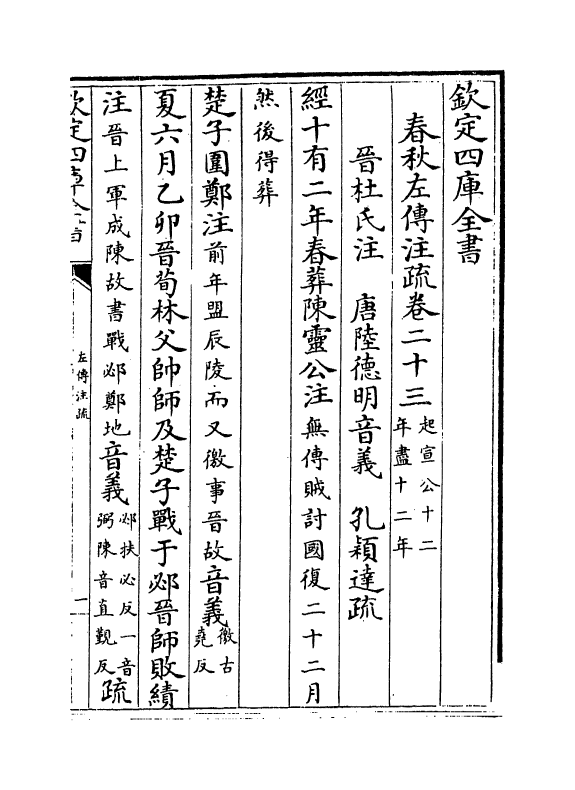 欽定四庫全書
春秋左傳注疏卷二十三
起宣公十二
年盡十二年
晉杜氏注　唐陸德明音義　孔穎達疏
經十有二年春葬陳靈公注無傳賊討國復二十二月
然後得葬
楚子圍鄭注前年盟辰陵而又徼事晉故音義徼古堯反
夏六月乙卯晉荀林父帥師及楚子戰于邲晉師敗績
注晉上軍成陳故書戰邲鄭地音義邲扶必反一音弼陳音直覲反疏
欽定四庫全書
左傳注疏
一